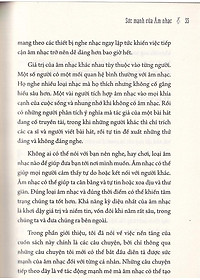 Sức mạnh của Âm nhạc 33
mang theo các thiết bị nghe nhạc ngay lập tức khiến việc tiếp
cận âm nhạc trở nên dễ dàng hơn bao giờ hết.
Giá trị của âm nhạc khác nhau tùy thuộc vào từng người.
Một số người có một mối quan hệ bình thường với âm nhạc.
Họ nghe nhiều loại nhạc mà họ thích nhưng không cố gắng
hiểu sâu hơn. Một vài người tích hợp âm nhạc vào mọi khía
cạnh của cuộc sống và nhưng nhớ khi không có âm nhạc. Rồi
có những người phân tích ý nghĩa mà tác giả của một bài hát
đang cố truyền tải, trong khi những người khác thì chỉ trích
các ca sĩ và người viết bài hát, rồi tự tin đề xuất những thứ
đáng và không đáng nghe.
Không ai có thể nói với bạn nên nghe, hay chơi, loại âm
nhạc nào để bạn được đến nơi mình muốn. Âm nhạc có thể
giúp mọi người cảm thấy tự do hoặc kết nối với người khác.
Âm nhạc có thể giúp ta cân bằng và tự tin hoặc xoa dịu và thư
giãn. Đúng loại âm nhạc và đúng thời điểm có thể khiến tâm
trạng chúng ta tốt hơn. Khả năng kỳ diệu nhất của âm nhạc
là khơi dậy giá trị và niềm tin, vốn đôi khi nằm rất sâu, trong
chúng ta và đưa chúng ra bên ngoài.
Trong phần giới thiệu, tôi đã nói về việc nền tảng của
cuốn sách này chính là các câu chuyện, bởi chỉ thông qua
những câu chuyện tôi mới có thể bắt đầu diễn tả được sức
mạnh của âm nhạc đối với từng cá nhân. Những câu chuyện
tiếp theo đây là về tác động mạnh mẽ mà âm nhạc đã có thể tạo